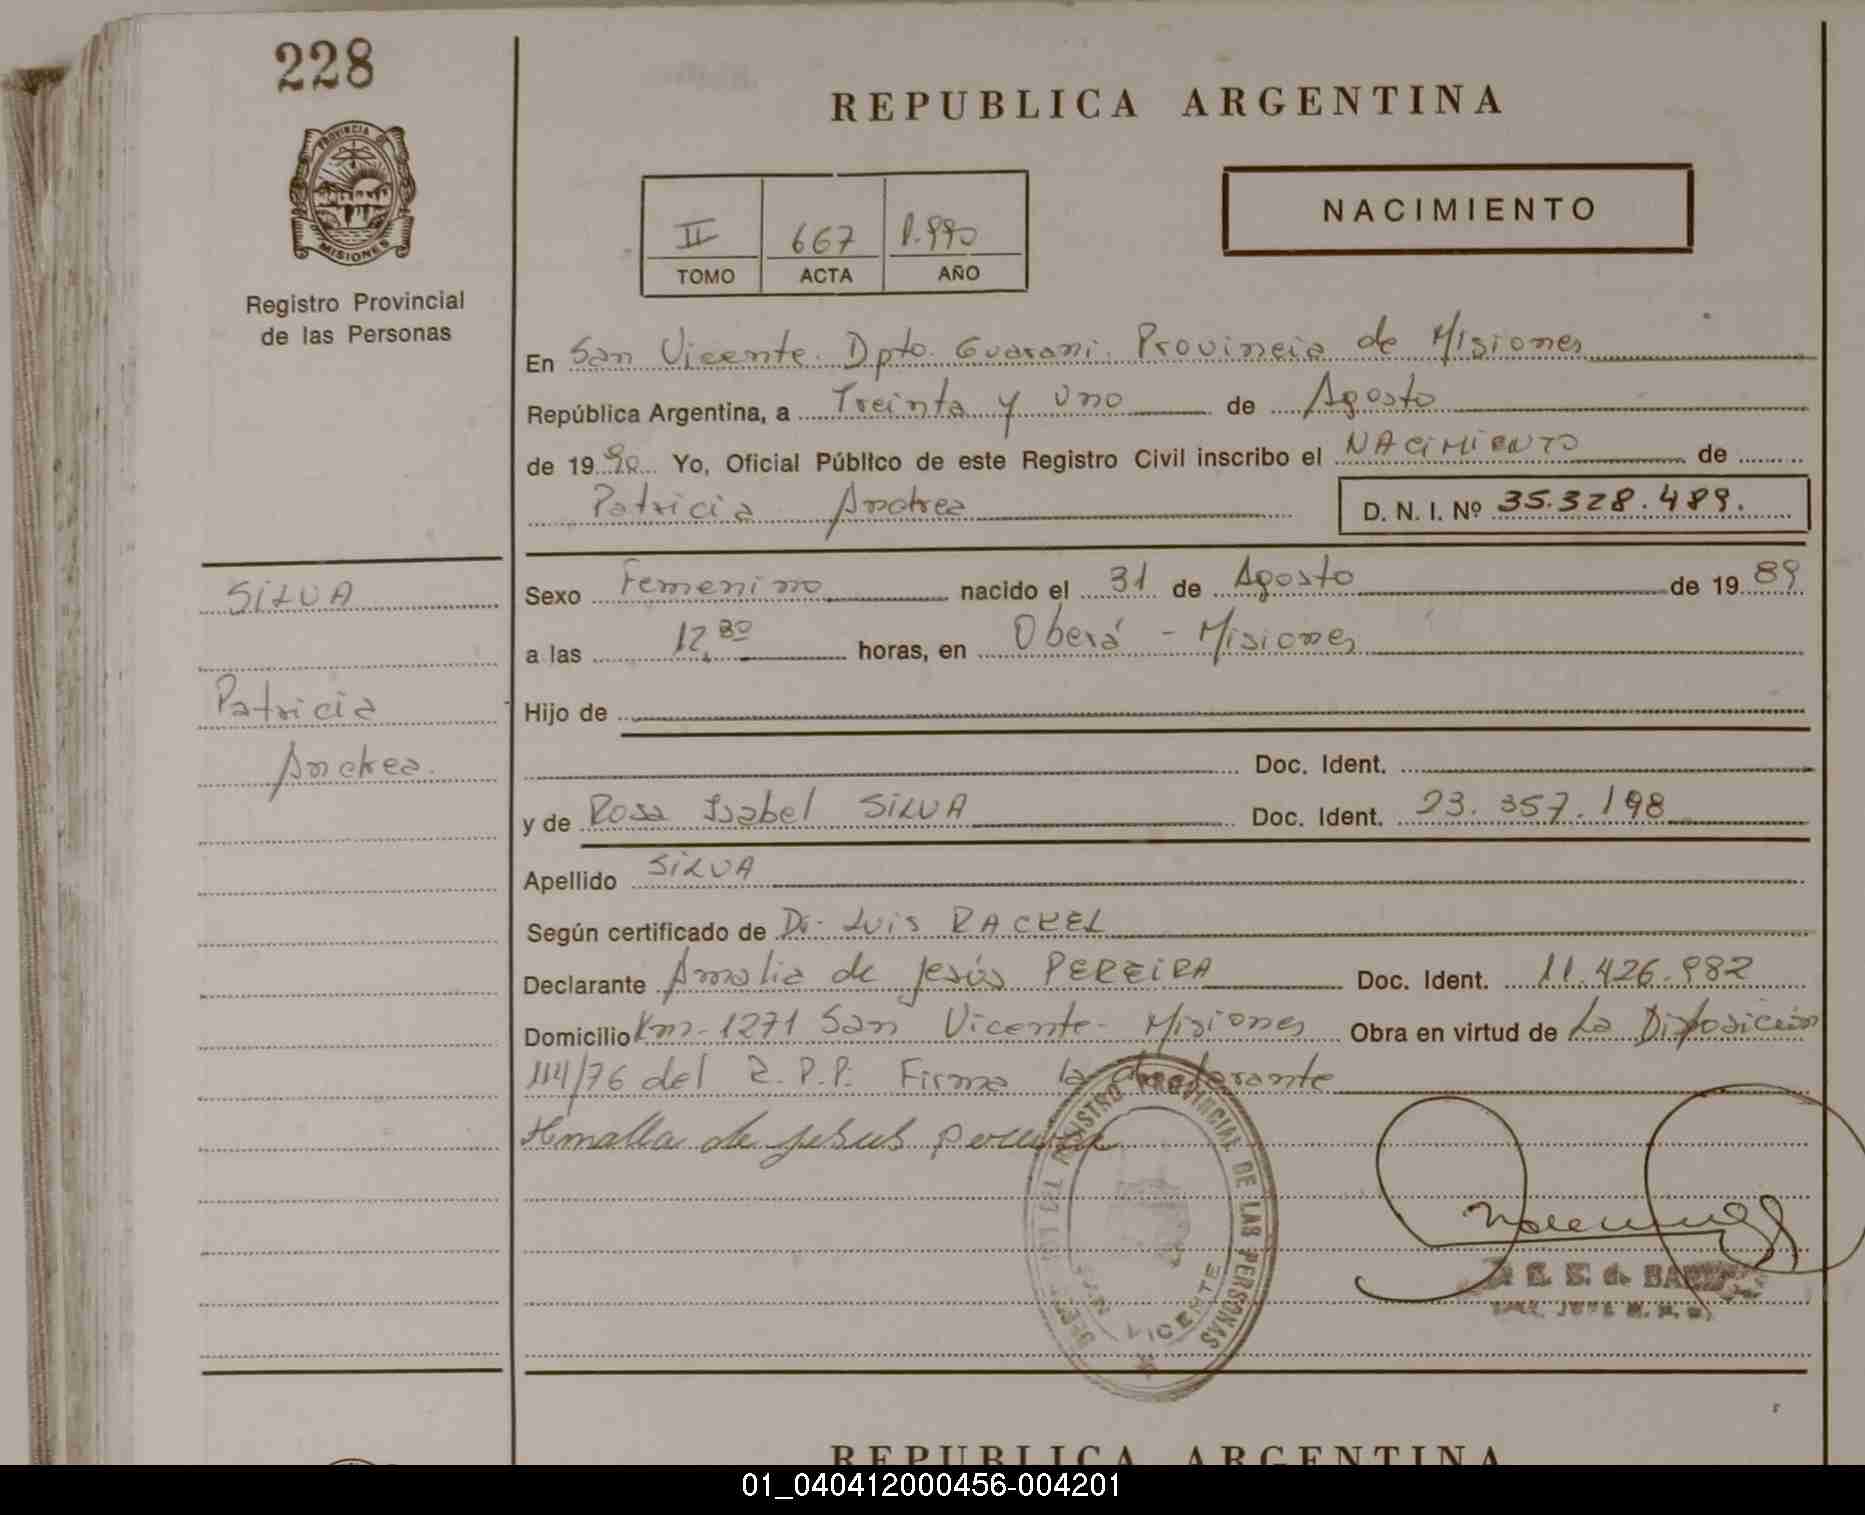 228
REPUBLICA ARGENTINA
PROVINCIA DE
MISIONES
Registro Provincial
de las Personas
II 667 1.990
TOMO ACTA AÑO
NACIMIENTO
En San Vicente. Dpto. Guarani. Provincia de Misiones
República Argentina, a Treinta y uno de Agosto
de 1990 Yo, Oficial Público de este Registro Civil inscribo el NACIMIENTO de
Patricia Andrea D. N. I. Nº 35.328.489.
SILVA
Patricia
Andrea.
Sexo Femenino nacido el 31 de Agosto de 1989
a las 12,30 horas, en Oberá - Misiones
Hijo de
Doc. Ident.
y de Rosa Isabel SILVA Doc. Ident. 23.357.198
Apellido SILVA
Según certificado de Dr. Luis RACKEL
Declarante Amalia de Jesús PEREIRA Doc. Ident. 11.426.982
Domicilio Km-1271 San Vicente- Misiones Obra en virtud de La Disposición
114/76 del R.P.P. Firma la declarante
Amalia de jesus pereira
REGISTRO PROVINCIAL DE LAS PERSONAS
VICENTE
REPUBLICA ARGENTINA
01_040412000456-004201